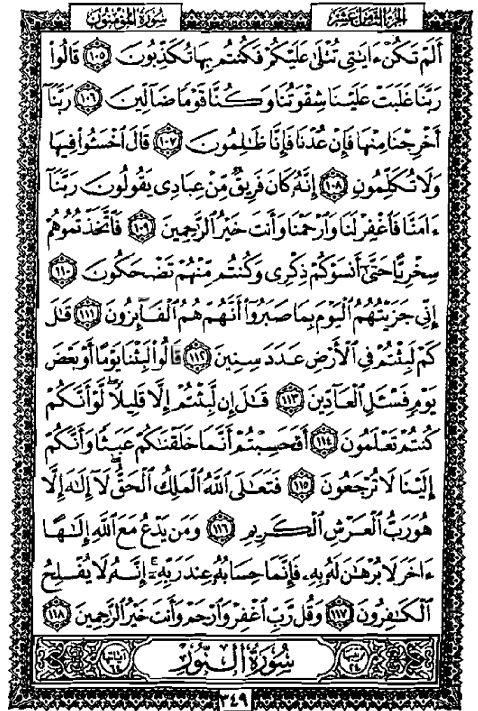 الجزء الثامن عشر سورة المؤمنون
أَلَمْ تَكُنْ ءَايَٰتِى تُتْلَىٰ عَلَيْكُمْ فَكُنتُم بِهَا تُكَذِّبُونَ ١٠٥ قَالُوا۟
رَبَّنَا غَلَبَتْ عَلَيْنَا شِقْوَتُنَا وَكُنَّا قَوْمًا ضَآلِّينَ ١٠٦ رَبَّنَآ
أَخْرِجْنَا مِنْهَا فَإِنْ عُدْنَا فَإِنَّا ظَٰلِمُونَ ١٠٧ قَالَ ٱخْسَـُٔوا۟ فِيهَا
وَلَا تُكَلِّمُونِ ١٠٨ إِنَّهُۥ كَانَ فَرِيقٌ مِّنْ عِبَادِى يَقُولُونَ رَبَّنَآ
ءَامَنَّا فَٱغْفِرْ لَنَا وَٱرْحَمْنَا وَأَنتَ خَيْرُ ٱلرَّٰحِمِينَ ١٠٩ فَٱتَّخَذْتُمُوهُمْ
سِخْرِيًّا حَتَّىٰٓ أَنسَوْكُمْ ذِكْرِى وَكُنتُم مِّنْهُمْ تَضْحَكُونَ ١١٠
إِنِّى جَزَيْتُهُمُ ٱلْيَوْمَ بِمَا صَبَرُوٓا۟ أَنَّهُمْ هُمُ ٱلْفَآئِزُونَ ١١١ قَٰلَ
كَمْ لَبِثْتُمْ فِى ٱلْأَرْضِ عَدَدَ سِنِينَ ١١٢ قَالُوا۟ لَبِثْنَا يَوْمًا أَوْ بَعْضَ
يَوْمٍ فَسْـَٔلِ ٱلْعَآدِّينَ ١١٣ قَٰلَ إِن لَّبِثْتُمْ إِلَّا قَلِيلًا ۖ لَّوْ أَنَّكُمْ
كُنتُمْ تَعْلَمُونَ ١١٤ أَفَحَسِبْتُمْ أَنَّمَا خَلَقْنَٰكُمْ عَبَثًا وَأَنَّكُمْ
إِلَيْنَا لَا تُرْجَعُونَ ١١٥ فَتَعَٰلَى ٱللَّهُ ٱلْمَلِكُ ٱلْحَقُّ ۖ لَآ إِلَٰهَ إِلَّا
هُوَ رَبُّ ٱلْعَرْشِ ٱلْكَرِيمِ ١١٦ وَمَن يَدْعُ مَعَ ٱللَّهِ إِلَٰهًا
ءَاخَرَ لَا بُرْهَٰنَ لَهُۥ بِهِۦ فَإِنَّمَا حِسَابُهُۥ عِندَ رَبِّهِۦٓ ۚ إِنَّهُۥ لَا يُفْلِحُ
ٱلْكَٰفِرُونَ ١١٧ وَقُل رَّبِّ ٱغْفِرْ وَٱرْحَمْ وَأَنتَ خَيْرُ ٱلرَّٰحِمِينَ ١١٨
ترتيبها ٢٤ سورة النور آياتها ٦٤
٣٤٩